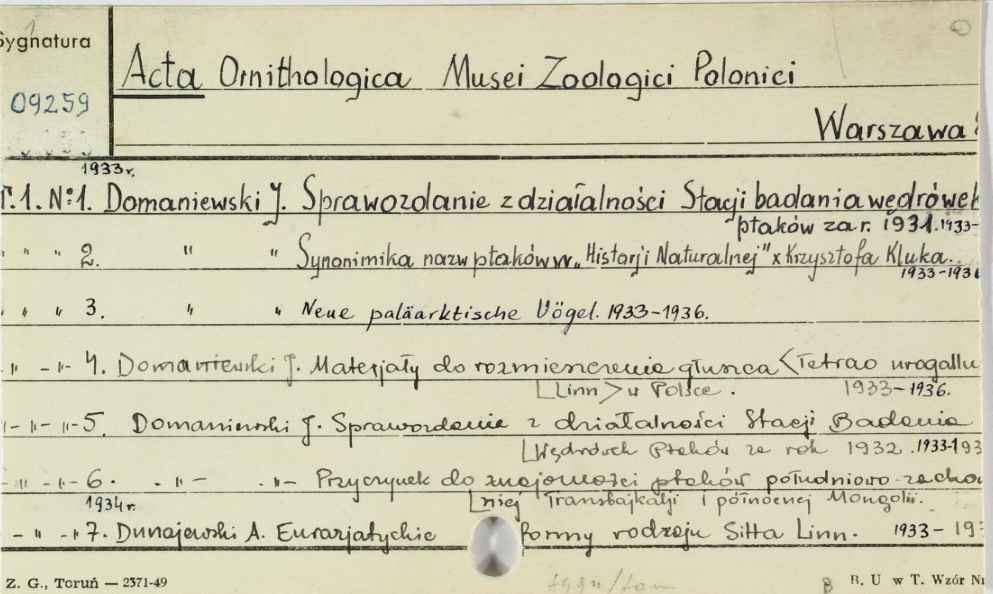 Sygnatura
09259
Acta Ornithologica Musei Zoologici Polonici
Warszawa
1933r.
T.1. No:1. Domaniewski J. Sprawozdanie z działalności Stacji badania wędrówek
ptaków za r. 1931. 1933-
" " " 2. " " Synonimika nazw ptaków w „Historji Naturalnej" x Krzysztofa Kluka.
1933-1936
" " 3. " " Neue paläarktische Vögel. 1933-1936.
" -"- 4. Domaniewski J. Materjały do rozmieszczenia głuszca <Tetrao urogallu
Linn> w Polsce. 1933-1936.
-"- "- "- 5. Domaniewski J. Sprawozdanie z działalności Stacji Badania
Wędrówek Ptaków za rok 1932. 1933-193
-"- -"- 6. -"- -"- Przyczynek do znajomości ptaków południowo-zacho
niej Transbajkalji i północnej Mongolii.
1934r.
- " - "7. Dunajewski A. Eurazjatyckie formy rodzaju Sitta Linn. 1933-193
Z. G., Toruń — 2371-49
B. U w T. Wzór Nr